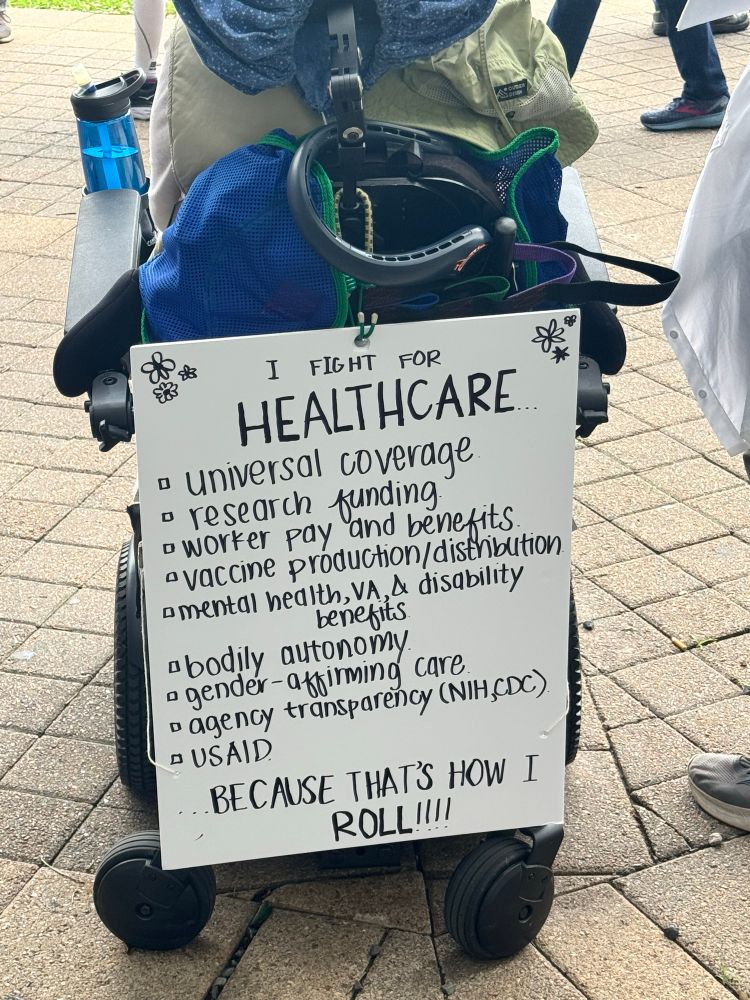 I FIGHT FOR
HEALTHCARE...
universal coverage
research funding
worker pay and benefits
vaccine production/distribution
mental health, VA, & disability
benefits
bodily autonomy
gender-affirming care
agency transparency (NIH, CDC)
USAID
...BECAUSE THAT'S HOW I
ROLL!!!!